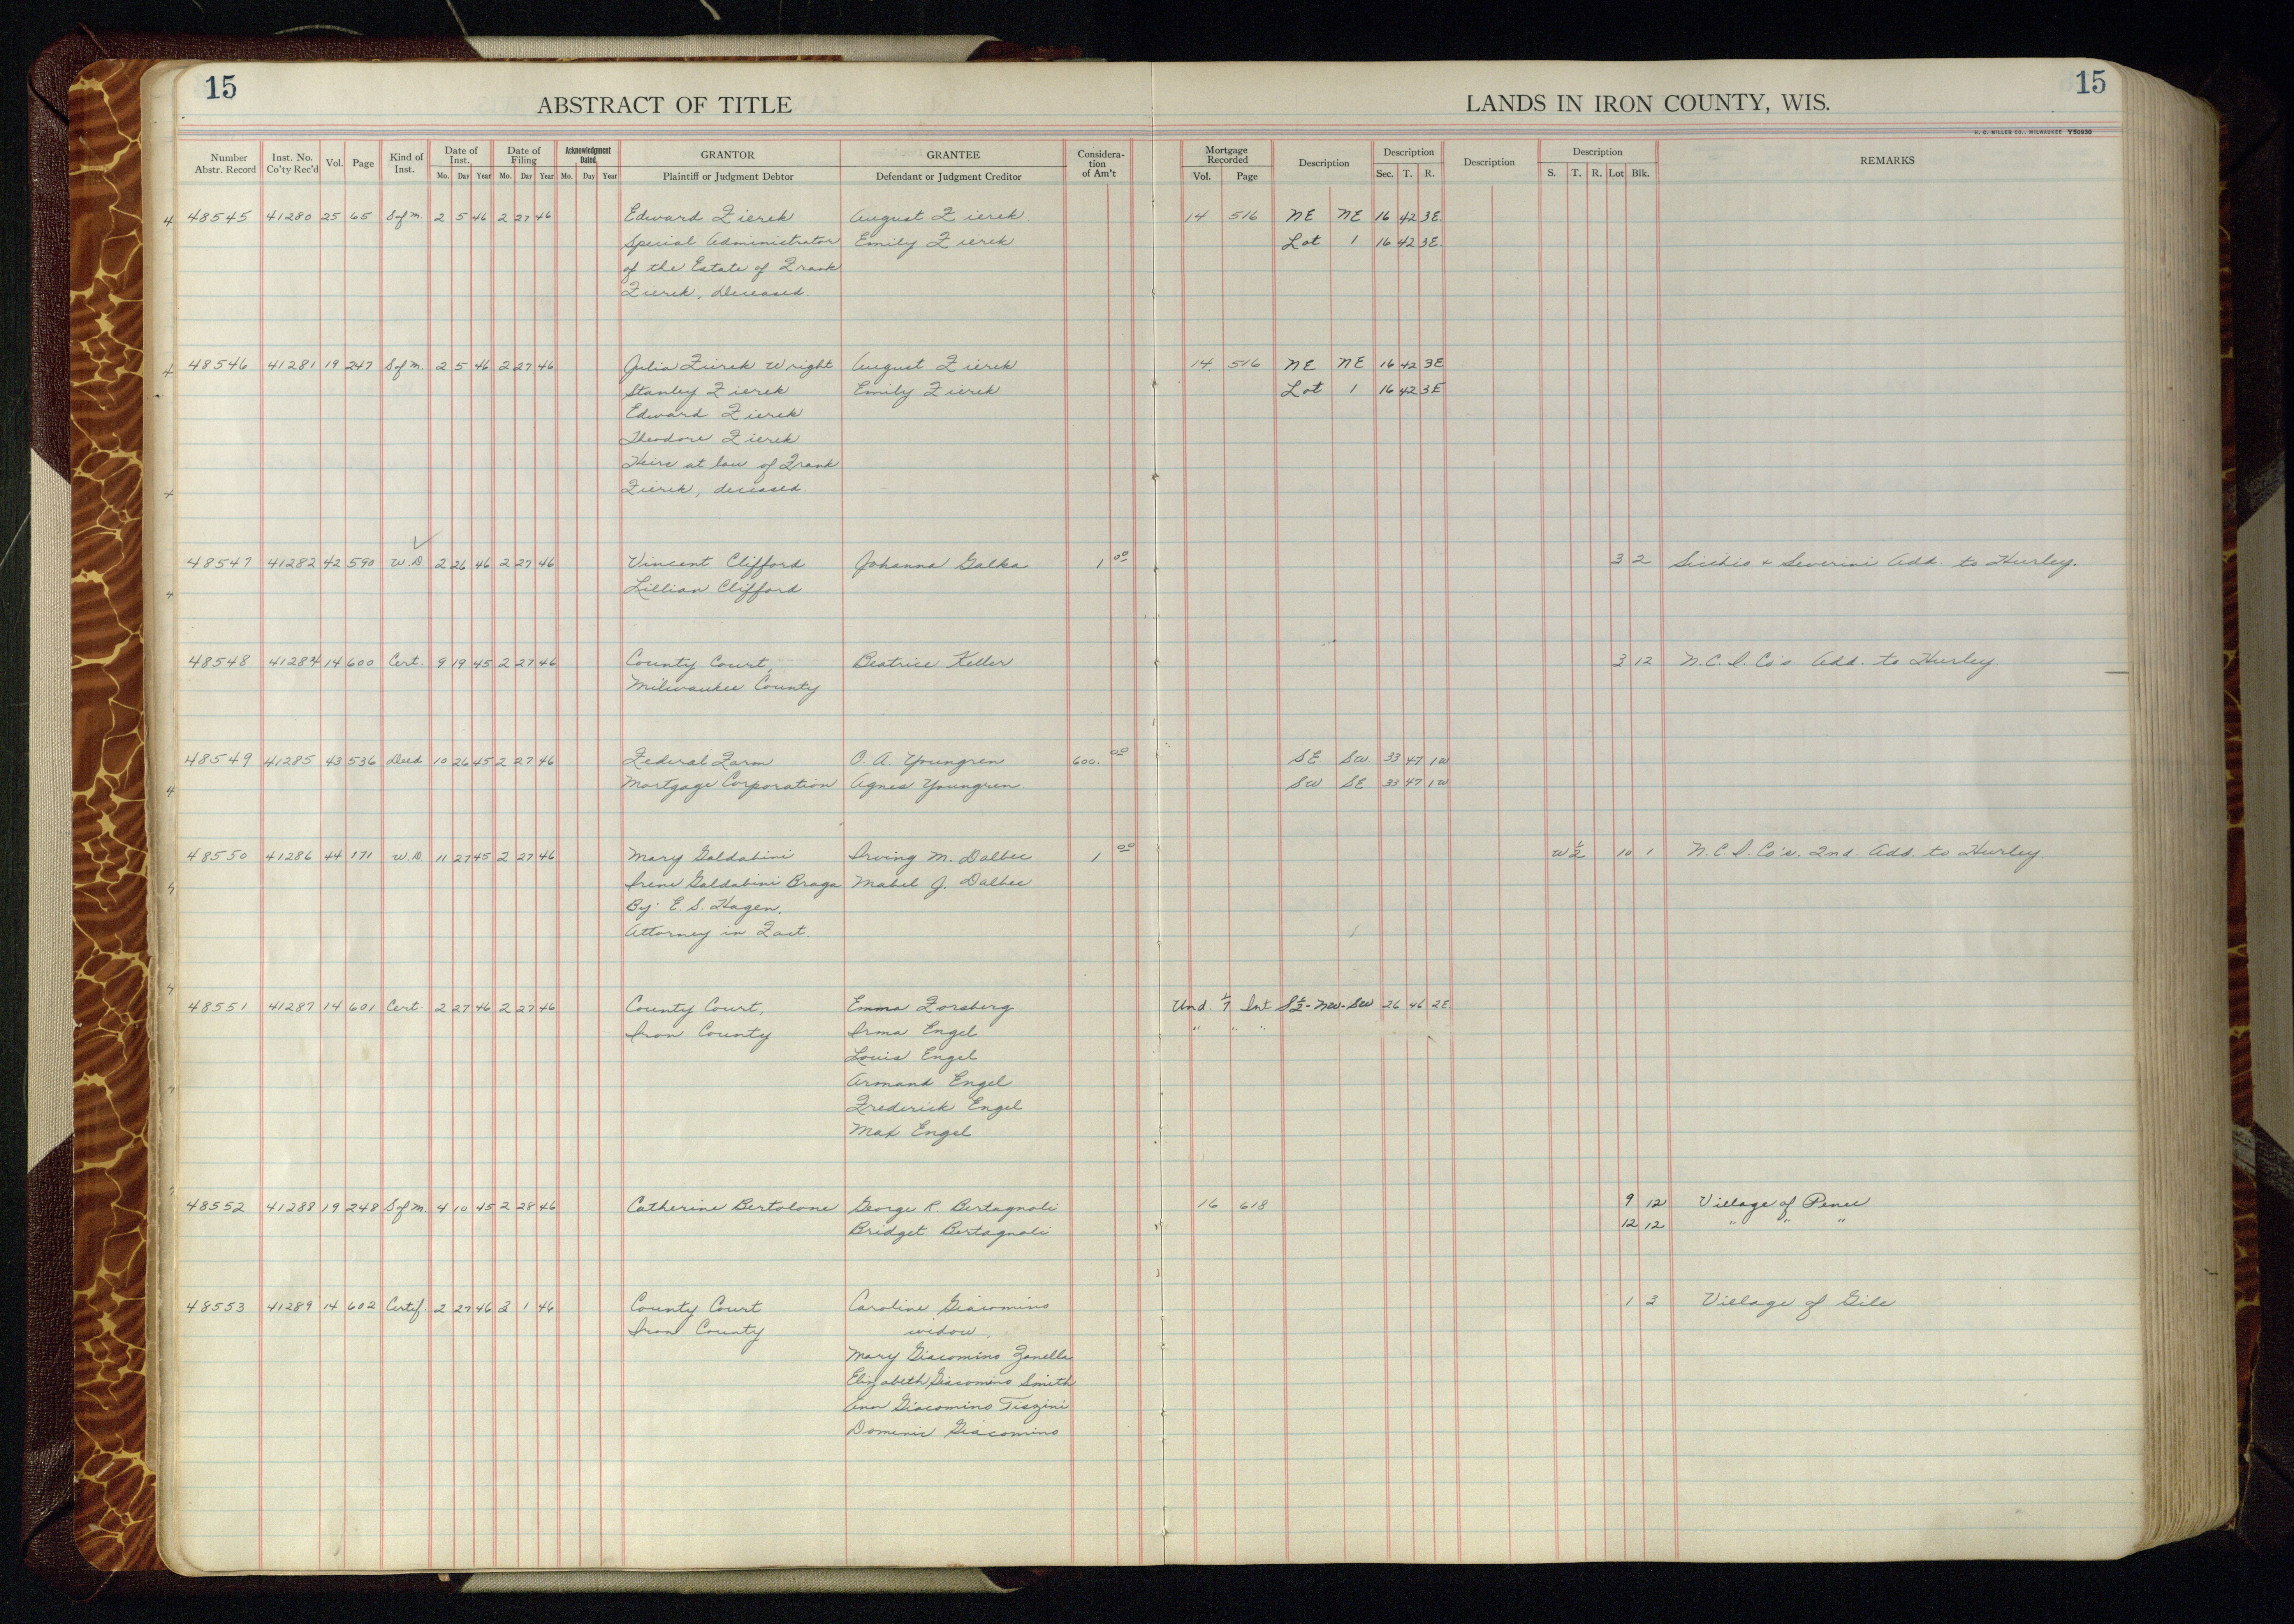 15
15
ABSTRACT OF TITLE
LANDS IN IRON COUNTY, WIS.
H. C. MILLER CO., MILWAUKEE Y50930
Number Abstr. Record Inst. No. Co'ty Rec'd Vol. Page Kind of Inst. Date of Inst. Mo. Day Year Date of Filing Mo. Day Year Acknowledgment Dated Mo. Day Year GRANTOR Plaintiff or Judgment Debtor GRANTEE Defendant or Judgment Creditor Considera-tion of Am't Mortgage Recorded Vol. Page Description Description Sec. T. R. Description Description S. T. R. Lot Blk. REMARKS
48545 41280 25 65 S of M. 2 5 46 2 27 46 Edward Zierek August Zierek 14 516 NE NE 16 42 3E.
Special Administrator Emily Zierek Lot 1 16 42 3E.
of the Estate of Frank
Zierek, Deceased.
48546 41281 19 247 S of M. 2 5 46 2 27 46 Julia Zierek Wright August Zierek 14 516 NE NE 16 42 3E
Stanley Zierek Emily Zierek Lot 1 16 42 3E
Edward Zierek
Theodore Zierek
Heirs at law of Frank
Zierek, deceased.
48547 41282 42 590 W.D. 2 26 46 2 27 46 Vincent Clifford Johanna Galka 1 00 3 2 Sicchio & Severini Add. to Hurley.
Lillian Clifford
48548 41284 14 600 Cert. 9 19 45 2 27 46 County Court, Beatrice Keller 3 12 N.C.I. Co's Add. to Hurley.
Milwaukee County
48549 41285 43 536 Deed 10 26 45 2 27 46 Federal Farm O. A. Youngren 600. 00 SE SW 33 47 1W
Mortgage Corporation Agnes Youngren. SW SE 33 47 1W
48550 41286 44 171 W.D. 11 27 45 2 27 46 Mary Galdabini Irving M. Dalbec 1 00 W 1/2 10 1 N.C.I. Co's. 2nd. Add. to Hurley.
Irene Galdabini Braga Mabel J. Dalbec
By: E. S. Hagen,
Attorney in Fact.
48551 41287 14 601 Cert. 2 27 46 2 27 46 County Court, Emma Forsberg Und. 1/7 Int S 1/2 - NW - SW 26 46 2E.
Iron County Irma Engel " " "
Louis Engel
Armand Engel
Frederick Engel
Max Engel
48552 41288 19 248 S of M. 4 10 45 2 28 46 Catherine Bertolone George R. Bertagnoli 16 618 9 12 Village of Pence
Bridget Bertagnoli 12 12 " " "
48553 41289 14 602 Certif. 2 27 46 3 1 46 County Court Caroline Giacomino 1 3 Village of Gile
Iron County widow,
Mary Giacomino Zanella
Elizabeth Giacomino Smith
Ann Giacomino Tiszini
Domenic Giacomino